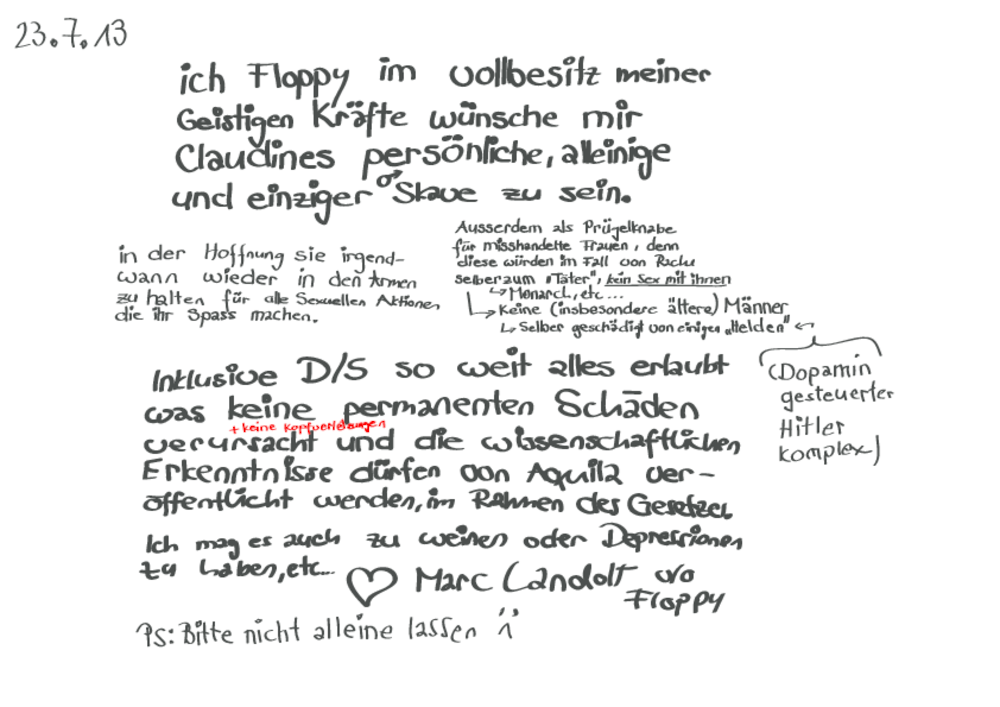 23.7.13
ich Floppy im vollbesitz meiner
Geistigen Kräfte wünsche mir
Claudines persönliche, alleinige
und einziger ♂ Slave zu sein.
in der Hoffnung sie irgend-
wann wieder in den Armen
zu halten für alle Sexuellen Aktionen
die ihr Spass machen.
Ausserdem als Prügelknabe
für misshandelte Frauen, denn
diese würden im Fall von Rache
selber zum "Täter", kein Sex mit ihnen
↳ Monarch, etc...
↳ Keine (insbesondere ältere) Männer
↳ Selber geschädigt von einigen "Helden" ←
(Dopamin
gesteuerter
Hitler
komplex)
Inklusive D/S so weit alles erlaubt
was keine permanenten Schäden
+ keine Kopfverletzungen
verursacht und die wissenschaftlichen
Erkenntnisse dürfen von Aquila ver-
öffentlicht werden, im Rahmen des Gesetzes
Ich mag es auch zu weinen oder Depressionen
zu haben, etc... ♡ Marc Landolt v/o
Floppy
Ps: Bitte nicht alleine lassen